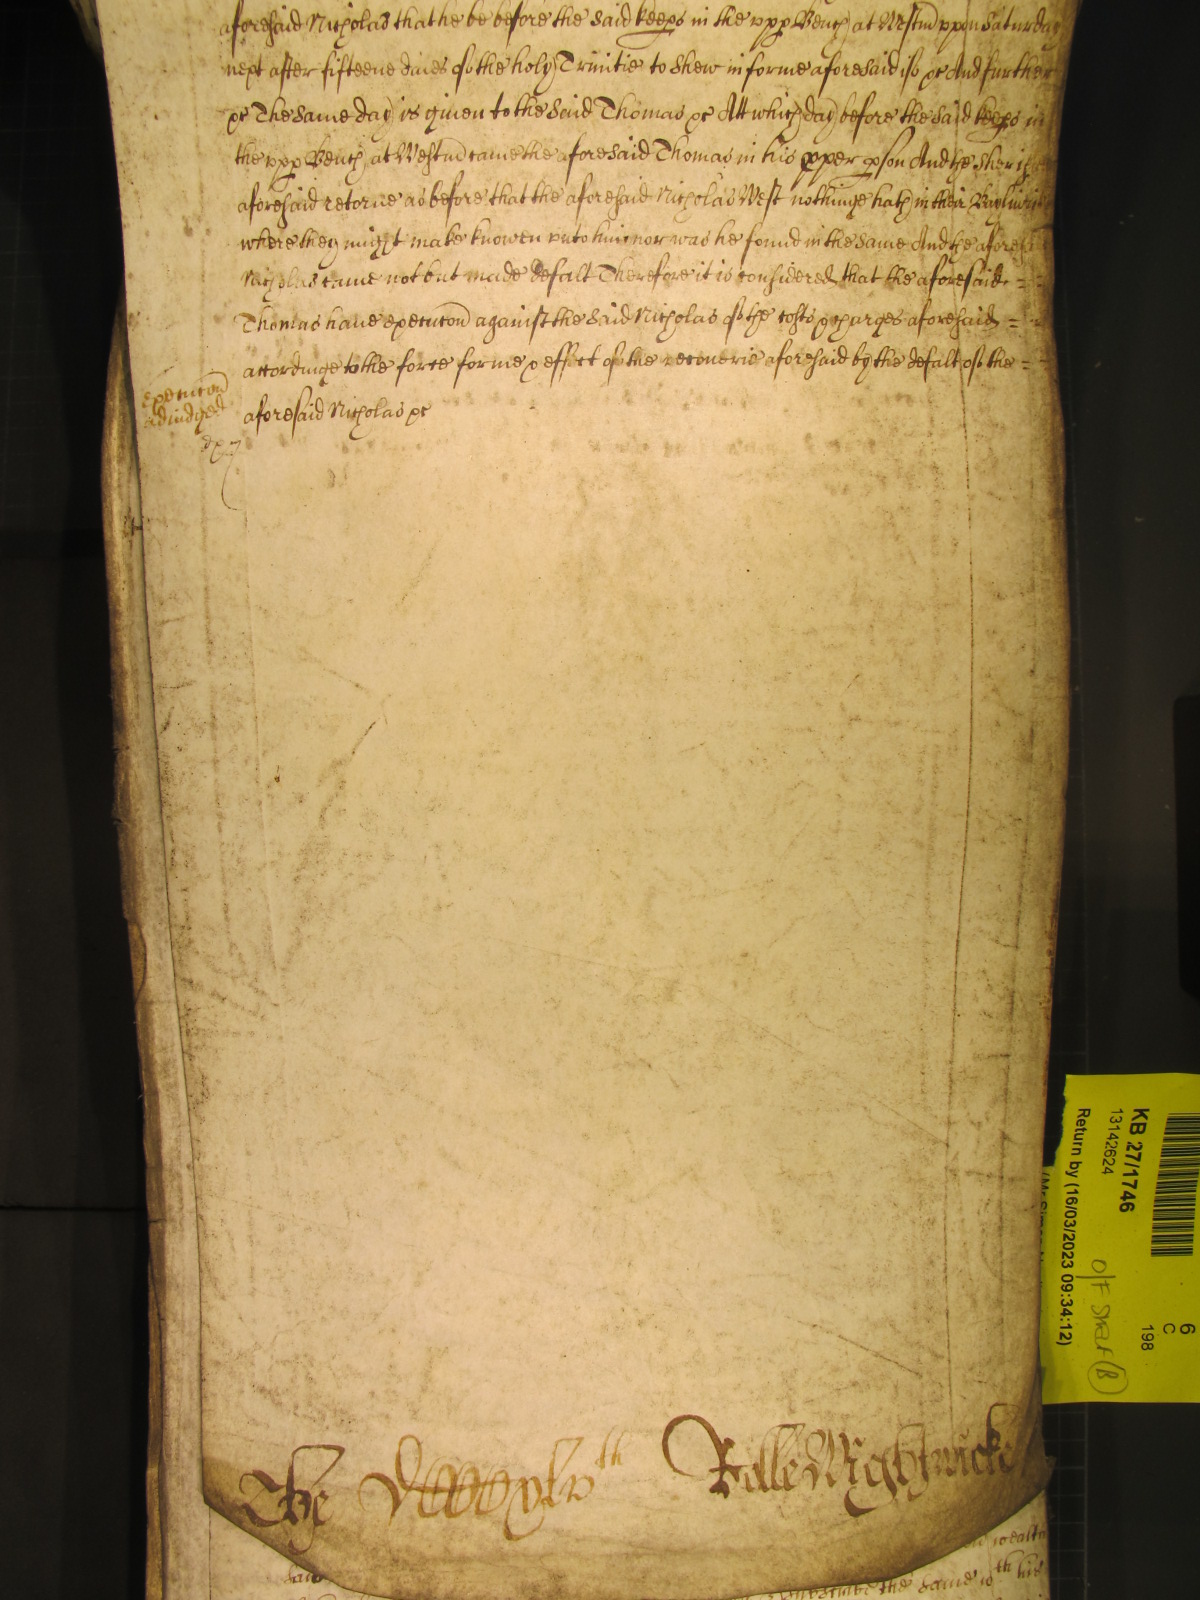 aforesaid Nicholas that he be before the said keeps in the vpp Bench at Westm vppon Saturday
next after fifteene daies of the holy Trinitie to shew in forme aforesaid if &c And further
&c The same day is giuen to the said Thomas &c Att which day before the said keeps in
the vpp Bench at Westm came the aforesaid Thomas in his pper pson And the Sheriffe
aforesaid retorne as before that the aforesaid Nicholas West nothinge hath in their Bayliwicke
where they might make knowen vnto him nor was he found in the same And the aforesaid
Nicholas came not but made defalt Therefore it is considered that the aforesaid
Thomas haue execucon against the said Nicholas of the costs & charges aforesaid
accordinge to the force forme & effect of the recouerie aforesaid by the defalt of the
aforesaid Nicholas &c
execucon
adiudged
The
th
Rolle Wightwicke
the same
th his
KB 27/1746
13142624
Return by (16/03/2023 09:34:12)
6
C
198
O/F Strat (B)